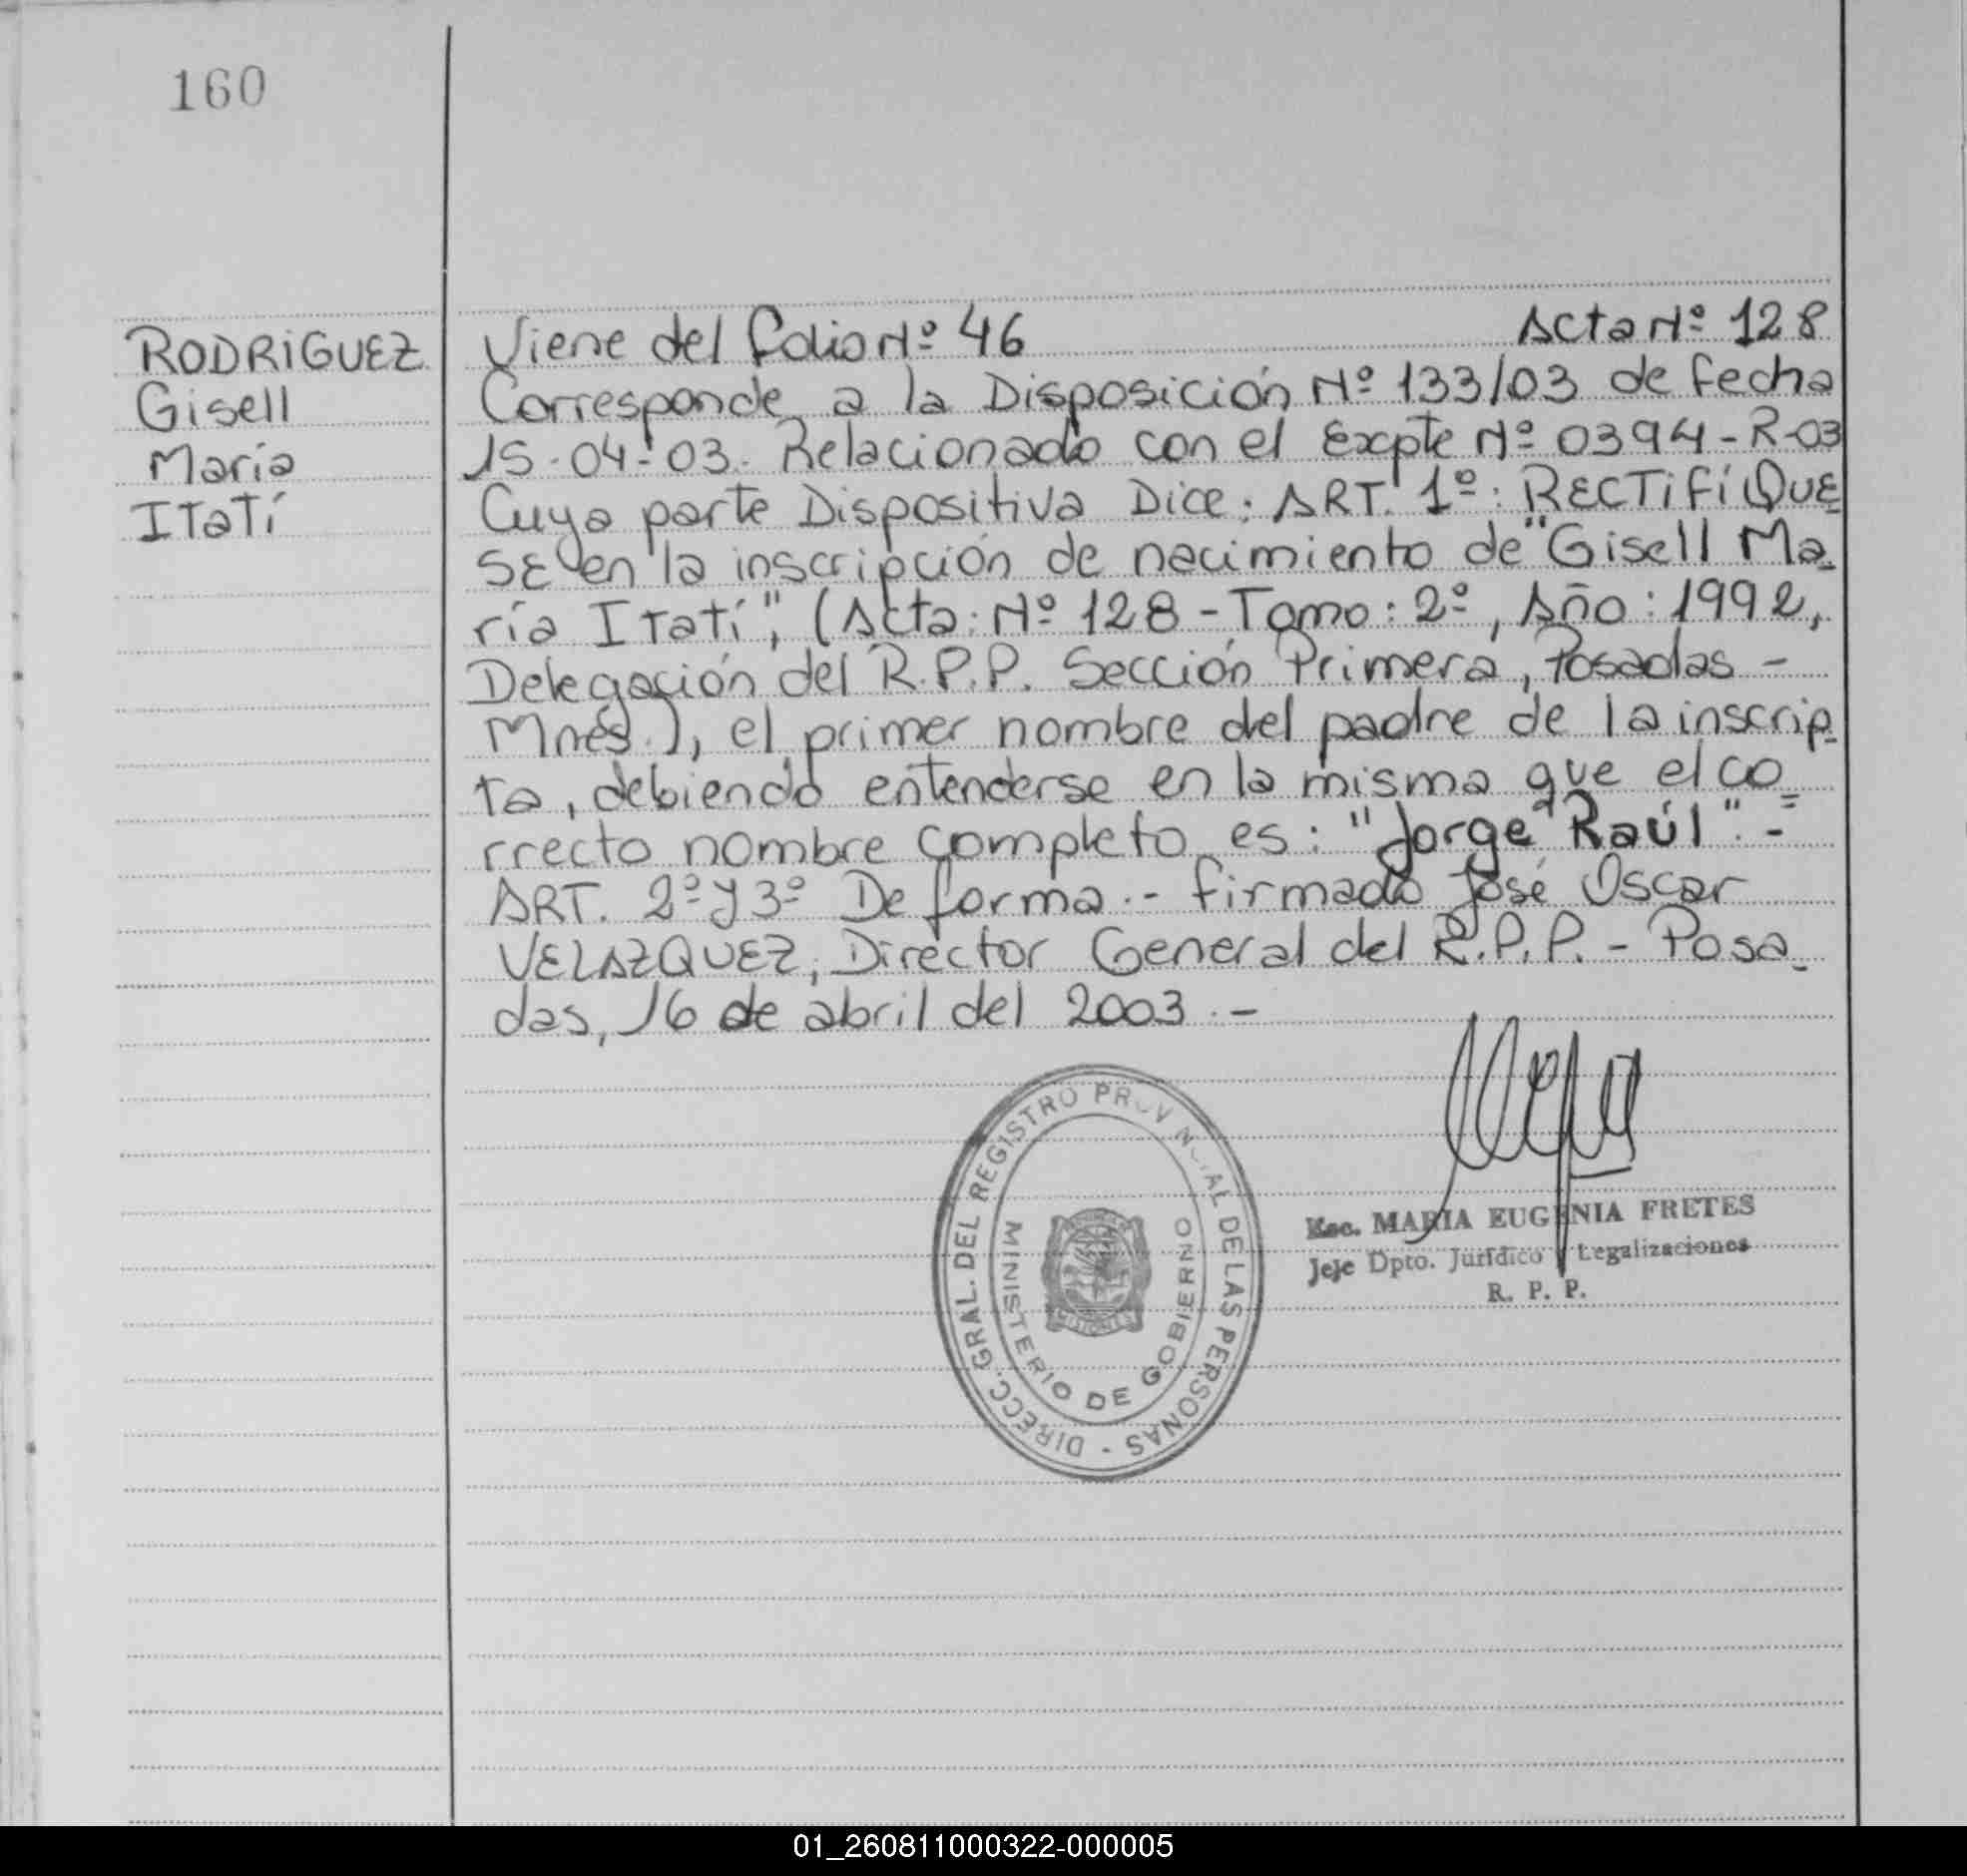 160
RODRIGUEZ
Gisell
María
ITatí
Viene del folio Nº 46 Acta Nº 128
Corresponde a la Disposición Nº 133/03 de fecha
15-04-03. Relacionado con el Expte Nº 0394-R-03
Cuya parte Dispositiva Dice: ART. 1º: RECTIFÍQUE
SE en la inscripción de nacimiento de "Gisell Ma-
ría ITatí", (Acta: Nº 128 - Tomo: 2º, Año: 1992,
Delegación del R.P.P. Sección Primera, Posadas -
Mnes.), el primer nombre del padre de la inscrip-
ta, debiendo entenderse en la misma que el co=
rrecto nombre completo es: "Jorge Raúl".-
ART. 2º y 3º De forma.- firmado José Oscar
VELAZQUEZ, Director General del R.P.P. - Posa-
das, 16 de abril del 2003.-
DIRECC. GRAL. DEL REGISTRO PROVINCIAL DE LAS PERSONAS -
MINISTERIO DE GOBIERNO
MISIONES
Esc. MARIA EUGENIA FRETES
Jefe Dpto. Jurídico y Legalizaciones
R. P. P.
01_260811000322-000005